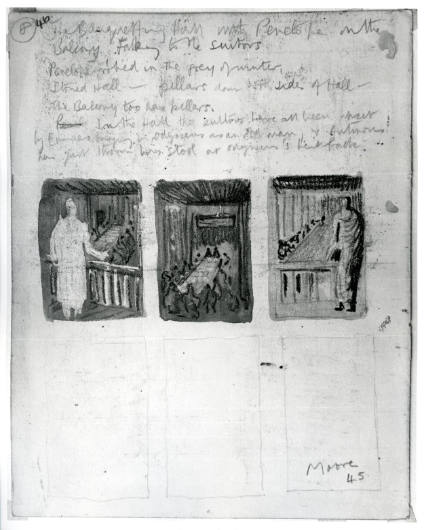 8 46
The Banqueting Hall with Penelope on the
Balcony talking to the suitors
Penelope robed in the grey of winter,
Stoned Hall — pillars down both sides of Hall —
The Balcony too has pillars.
In the Hall the suitors have all been upset
by Odysseus as an old man, &
has just thrown his stool at Odysseus's back
Moore
45.